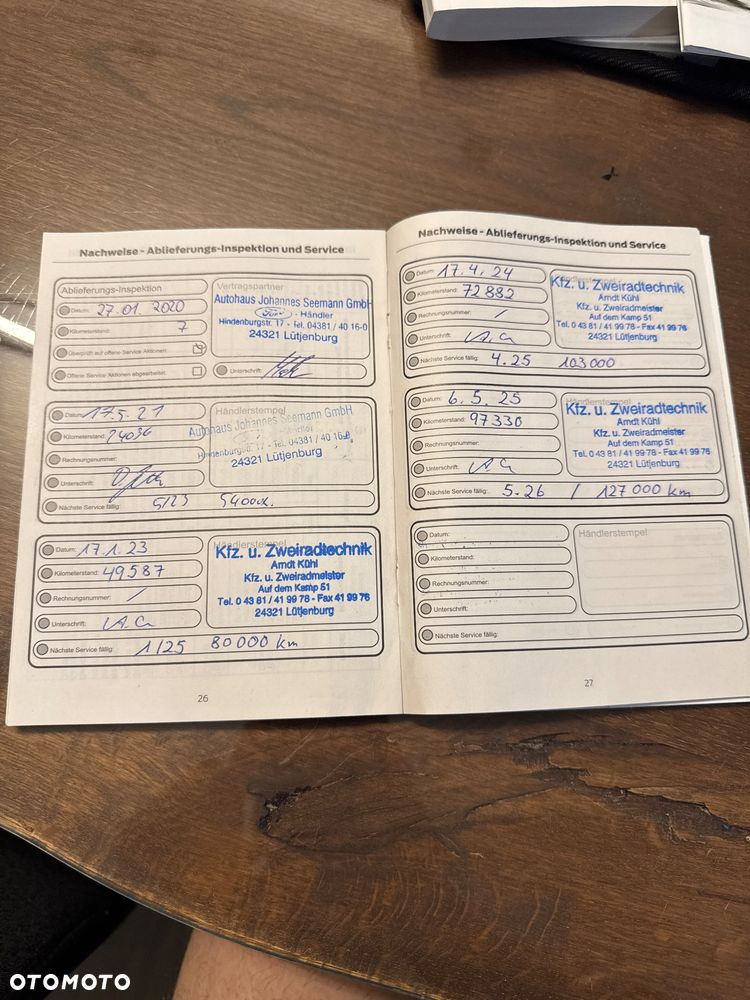 Nachweise - Ablieferungs-Inspektion und Service
Ablieferungs-Inspektion
Datum: 27.01.2020
Kilometerstand: 7
Überprüft auf offene Service Aktionen:
Offene Service-Aktionen abgearbeitet:
Vertragspartner
Autohaus Johannes Seemann GmbH
Ford - Händler
Hindenburgstr. 17 - Tel. 04381 / 40 16-0
24321 Lütjenburg
Unterschrift:
Datum: 17.5.21
Kilometerstand: 24036
Rechnungsnummer:
Unterschrift:
Nächste Service fällig: 5/23 54000k.
Händlerstempel
Autohaus Johannes Seemann GmbH
Hindenburgstr. 17 - Tel. 04381 / 40 16-0
24321 Lütjenburg
Datum: 17.1.23
Kilometerstand: 49587
Rechnungsnummer: /
Unterschrift:
Nächste Service fällig: 1/25 80000 km
Händlerstempel
Kfz. u. Zweiradtechnik
Arndt Kühl
Kfz. u. Zweiradmeister
Auf dem Kamp 51
Tel. 0 43 81 / 41 99 78 - Fax 41 99 76
24321 Lütjenburg
26
Nachweise - Ablieferungs-Inspektion und Service
Datum: 17.4.24
Kilometerstand: 72882
Rechnungsnummer: /
Unterschrift:
Nächste Service fällig: 4.25 103000
Händlerstempel
Kfz. u. Zweiradtechnik
Arndt Kühl
Kfz. u. Zweiradmeister
Auf dem Kamp 51
Tel. 0 43 81 / 41 99 78 - Fax 41 99 76
24321 Lütjenburg
Datum: 6.5.25
Kilometerstand: 97330
Rechnungsnummer:
Unterschrift:
Nächste Service fällig: 5.26 / 127000 km
Händlerstempel
Kfz. u. Zweiradtechnik
Arndt Kühl
Kfz. u. Zweiradmeister
Auf dem Kamp 51
Tel. 0 43 81 / 41 99 78 - Fax 41 99 76
24321 Lütjenburg
Datum:
Kilometerstand:
Rechnungsnummer:
Unterschrift:
Nächste Service fällig:
Händlerstempel
27
OTOMOTO